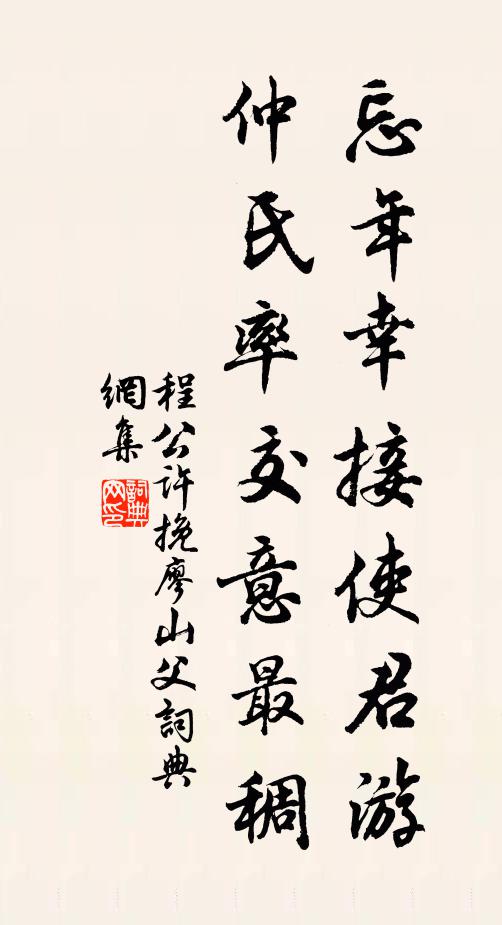 忘年幸接使君游
仲氏率交意最稠
程公许挽廖山父詞典
網集
詞典網印